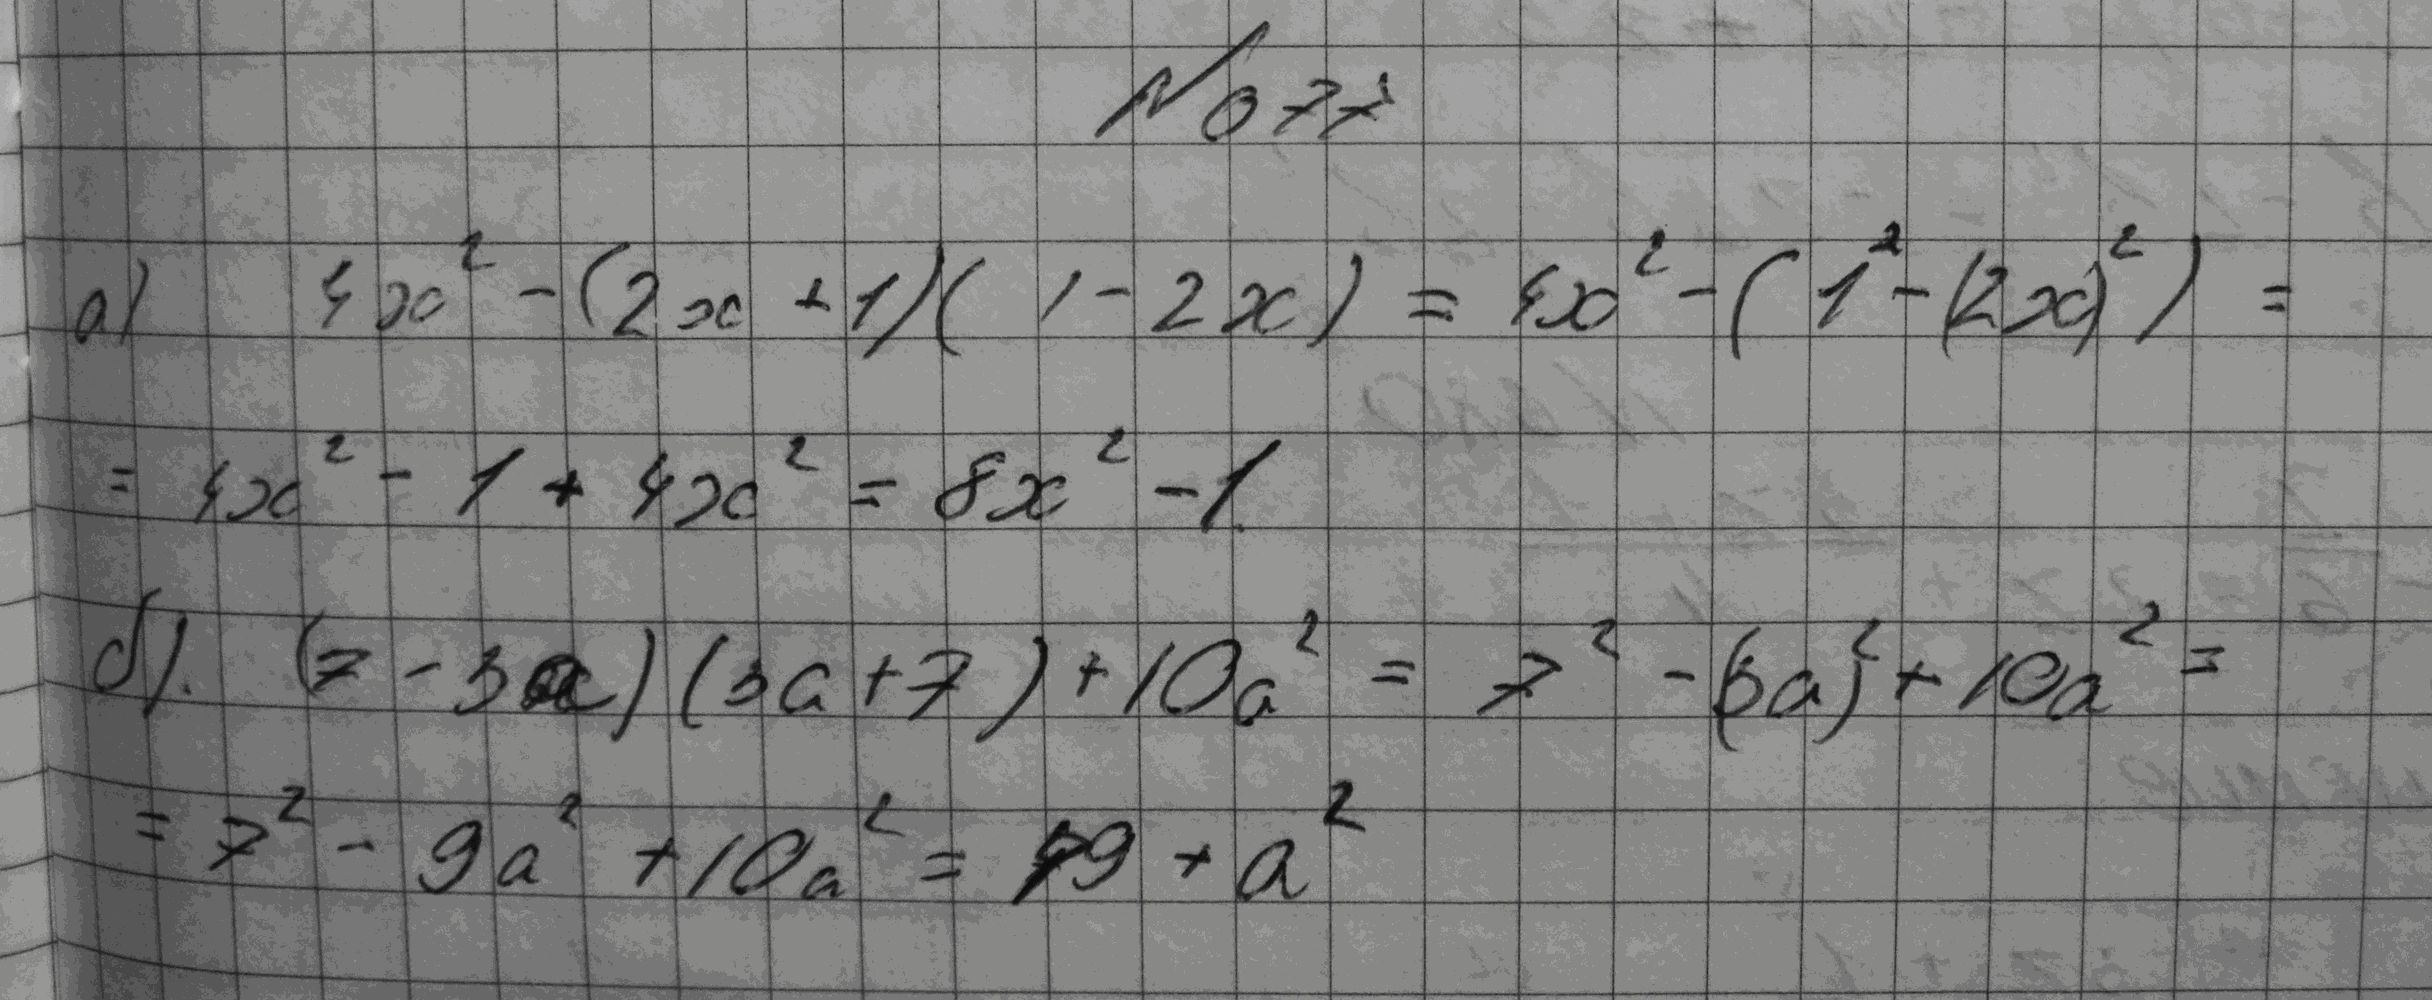 № 77
а) 4x² - (2x + 1)(1 - 2x) = 4x² - (1² - (2x)²) =
= 4x² - 1 + 4x² = 8x² - 1.
б). (7 - 3a)(3a + 7) + 10a² = 7² - (3a)² + 10a² =
= 7² - 9a² + 10a² = 49 + a²